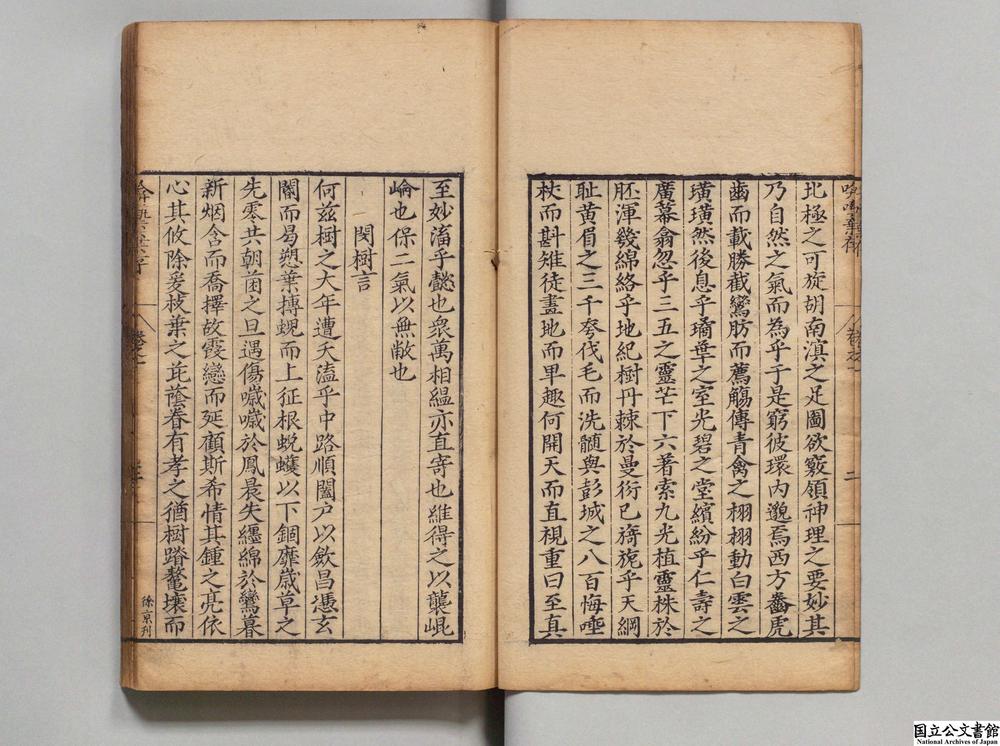 北極之可旋胡南滇之足圖欲竅領神理之要妙其
乃自然之氣而為乎于是窮彼環內邈焉西方齒虎
齒而載勝截鸞肪而薦觴傳青禽之栩栩動白雲之
璜璜然後息乎瑤華之室光碧之堂繽紛乎仁壽之
廣幕翕忽乎三五之靈芒下六著索九光植靈株於
胚渾幾綿絡乎地紀樹丹棘於曼衍已旖旎乎天綱
耻黃眉之三千夸伐毛而洗髓與彭城之八百悔唾
杖而斟雉徒畫地而早趣何開天而直視重曰至真
至妙滀乎懿也衆萬相縕亦直寄也維得之以襲崐
崘也保二氣以無敝也
閔樹言
何茲樹之大年遭夭溘乎中路順闔户以歛昌憑玄
關而曷愬葉搏蜺而上征根蛻蠖以下錮靡歲草之
先零共朝菌之旦遇傷噦噦於鳳晨失纏綿於鸞暮
新烟含而喬擇故霞戀而延顧斯希情其鍾之亮依
心其攸除爰枝葉之庇蔭眷有孝之猶樹踣鼇壊而
卷之一
二
卷之一
徐京刊
国立公文書館
National Archives of Japan